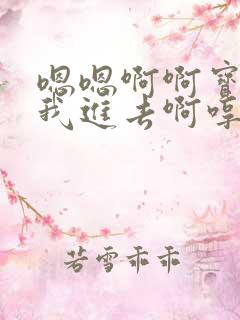 嗯嗯啊啊寶
我進去啊哼
若雪乖乖